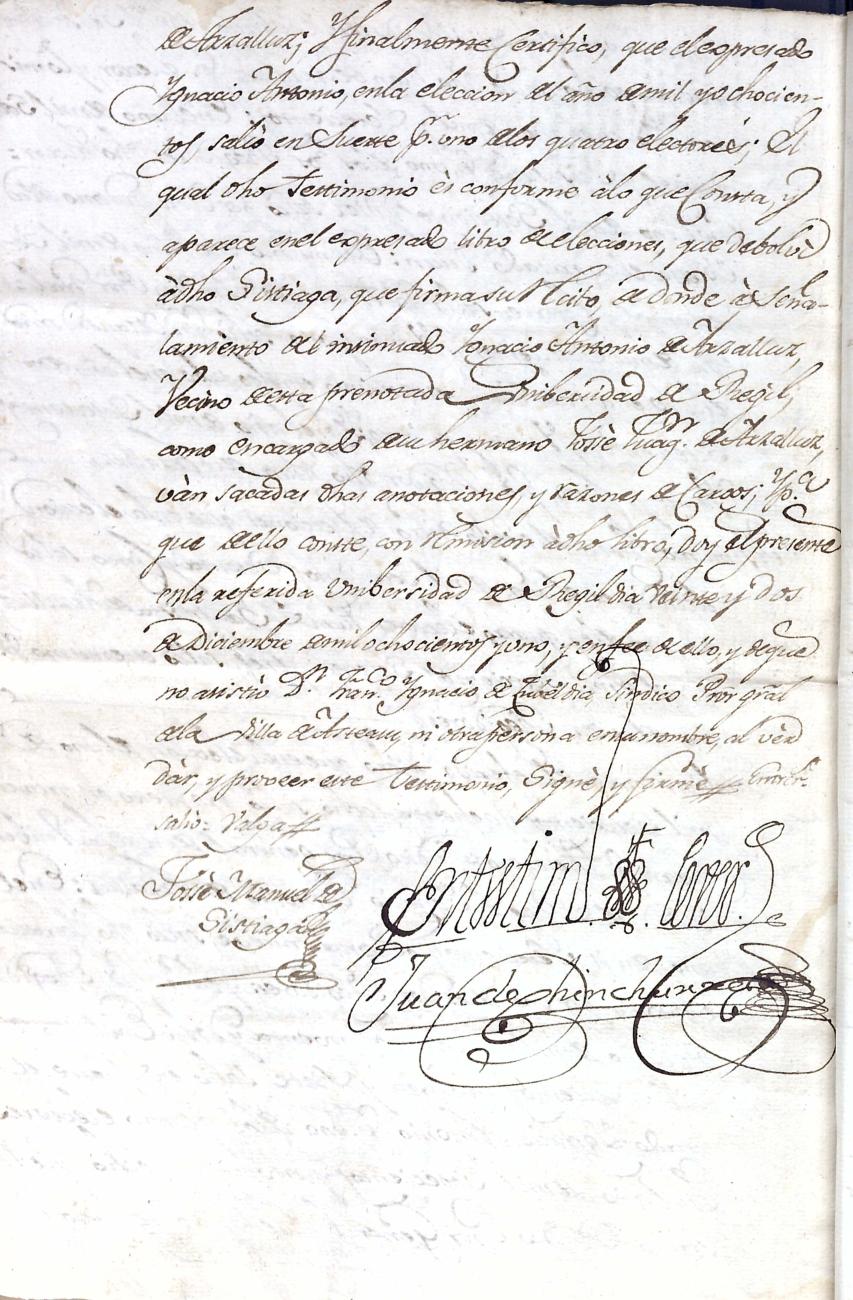 de Arzalluz; Yfinalmente Certifico, que el expresado
Ygnacio Antonio, enla eleccion del año demil yochocien-
tos salio en Suerte p.r uno delos quatro electores; El
qual dho Testimonio ès conforme àlo que Consta, y
aparece enel expresado libro de elecciones, que debolvi
àdho Sistiaga, que firma su Recivo, de donde à Señà-
lamiento del insinuado Ygnacio Antonio de Arzalluz,
Vecino deesta prenotada Unibersidad de Regil;
como èncargado desu hermano Josè Juaq.n de Arzalluz,
vàn sacadas dhas anotaciones, y razones de Cargos; Yp.a
que dello conste, con remision àdho libro, doy el presente
enla referida Unibersidad de Regil dia veinte y dos
de Diciembre demilochocientos yuno, y enfee de ello, y deque
no asistio D.n Fran.co Ygnacio de Sindico Pror gràl
dela Villa de Asteasu, ni otra persona ensunombre, al vèr
dàr, y proveer este Testimonio, Signè, y firmè
salio= Valga
Josè Manuel de
Sistiaga
Entestim.o de Verd.
Juan de Chinchurreta